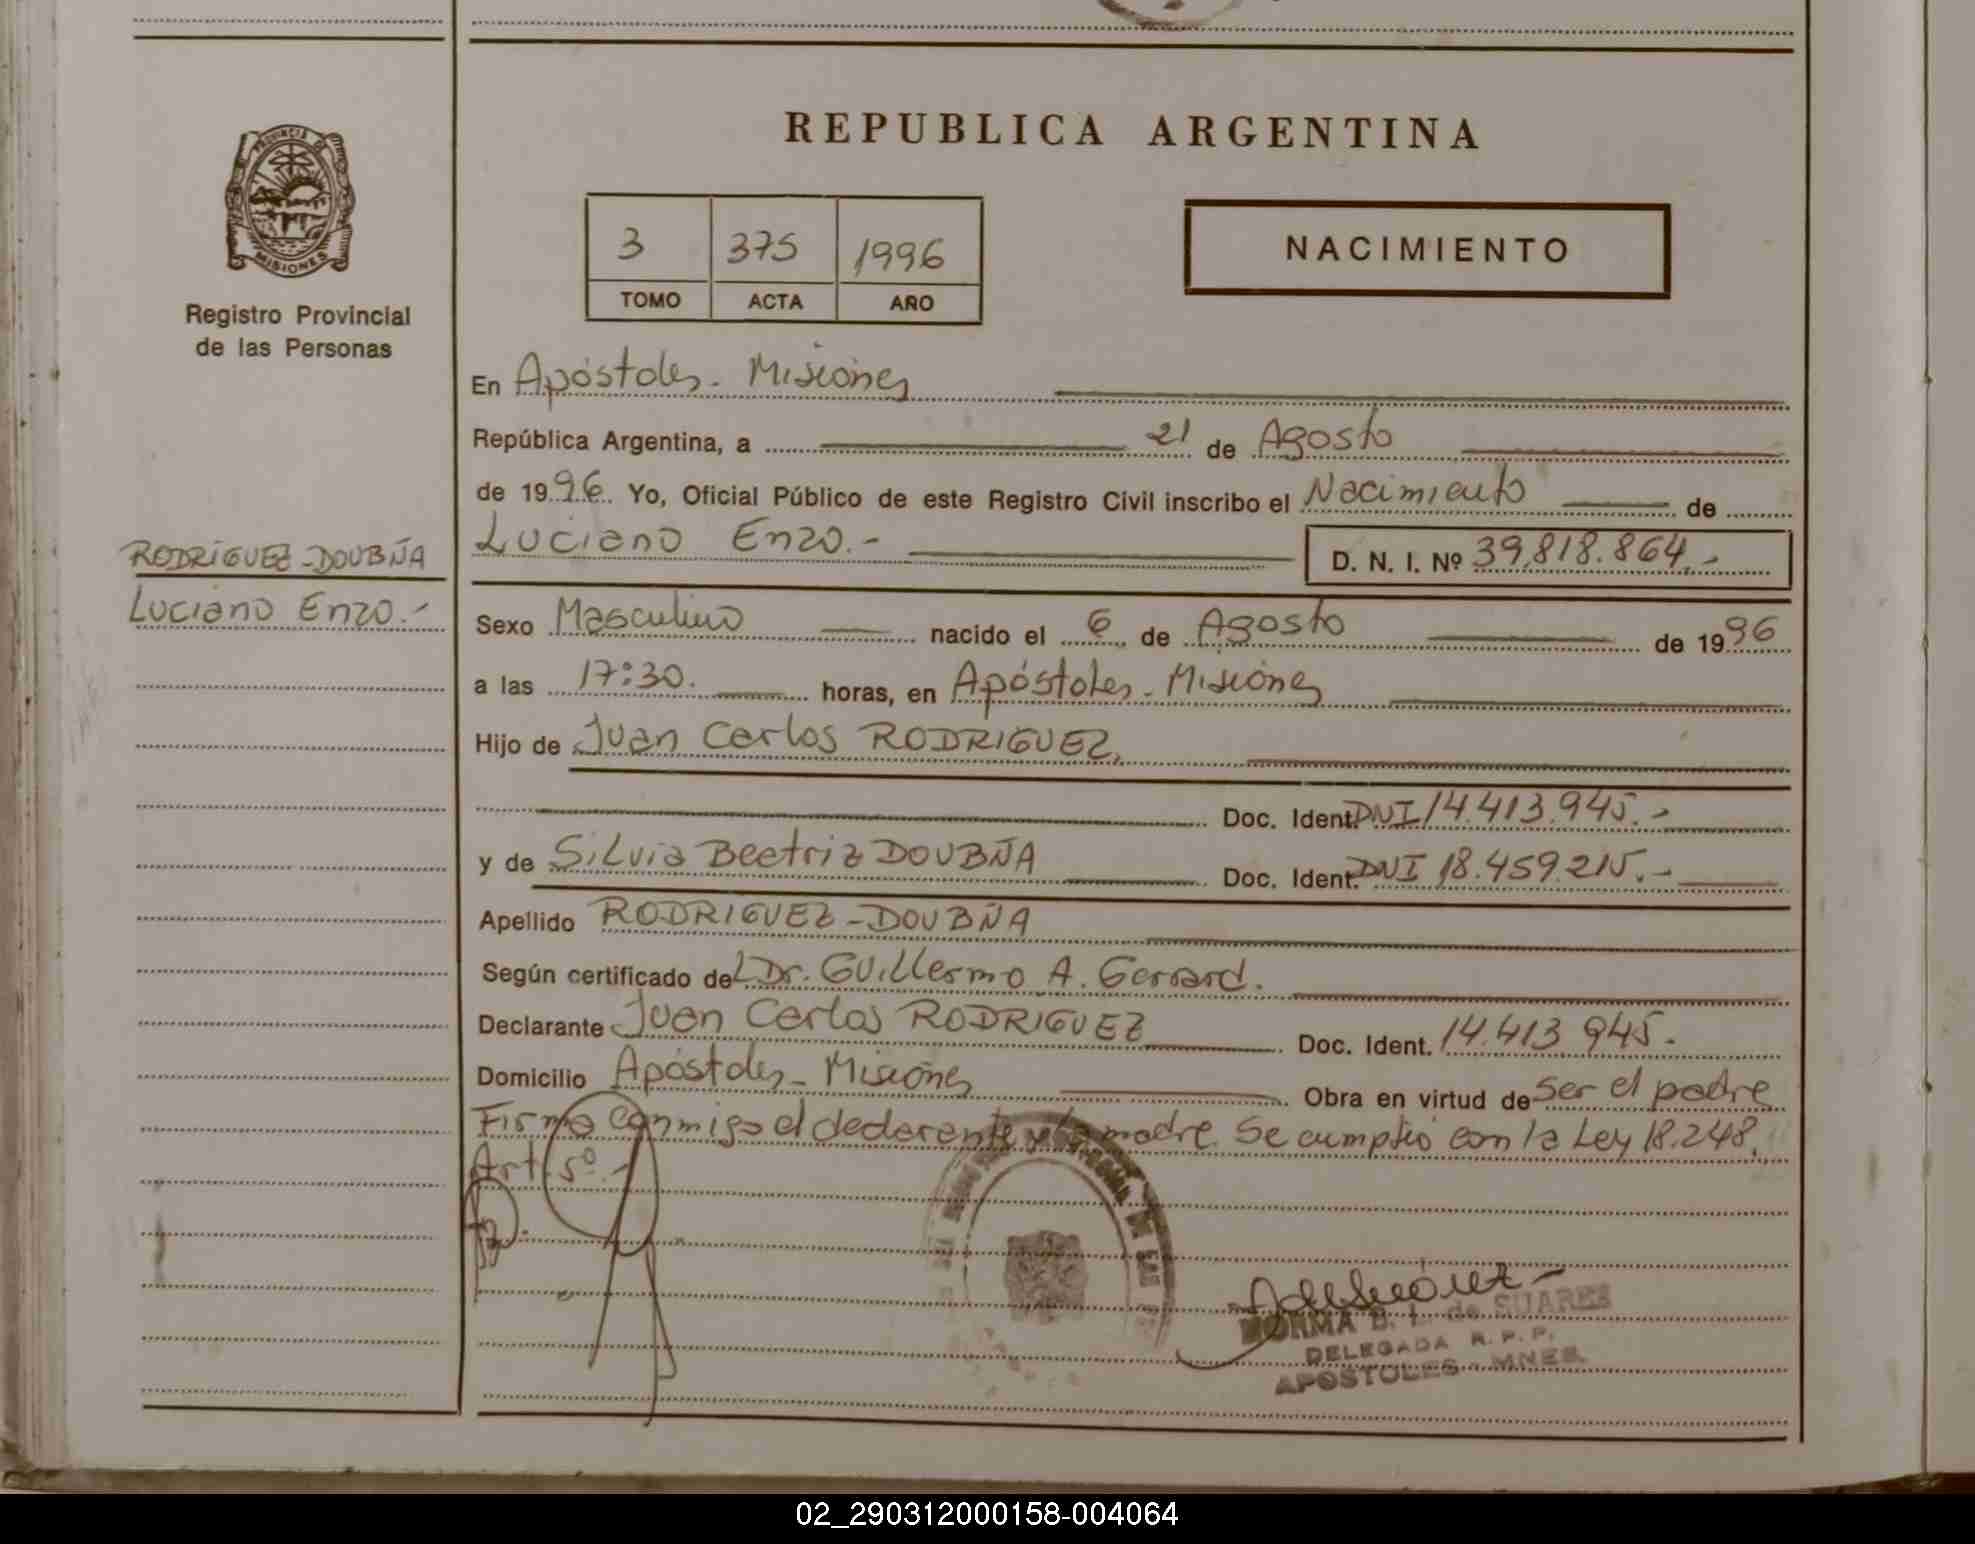 PROVINCIA DE
MISIONES
Registro Provincial
de las Personas
RODRIGUEZ-DOUBÑA
Luciano Enzo.-
REPUBLICA ARGENTINA
3 375 1996
TOMO ACTA AÑO
NACIMIENTO
En Apóstoles - Misiones
República Argentina, a 21 de Agosto
de 1996. Yo, Oficial Público de este Registro Civil inscribo el Nacimiento de
Luciano Enzo.- D. N. I. Nº 39.818.864.-
Sexo Masculino nacido el 6 de Agosto de 1996
a las 17:30. horas, en Apóstoles - Misiones
Hijo de Juan Carlos RODRIGUEZ,
Doc. Ident. DNI 14.413.945.-
y de Silvia Beatriz DOUBÑA Doc. Ident. DNI 18.459.215.-
Apellido RODRIGUEZ-DOUBÑA
Según certificado del Dr. Guillermo A. Gerrard.
Declarante Juan Carlos RODRIGUEZ Doc. Ident. 14.413.945.
Domicilio Apóstoles - Misiones Obra en virtud de Ser el padre
Firma conmigo el declarante y la madre. Se cumplió con la Ley 18.248,
Art. 5º.-
NORMA B. L. de SUAREZ
DELEGADA R. P. P.
APOSTOLES - MNES.
02_290312000158-004064